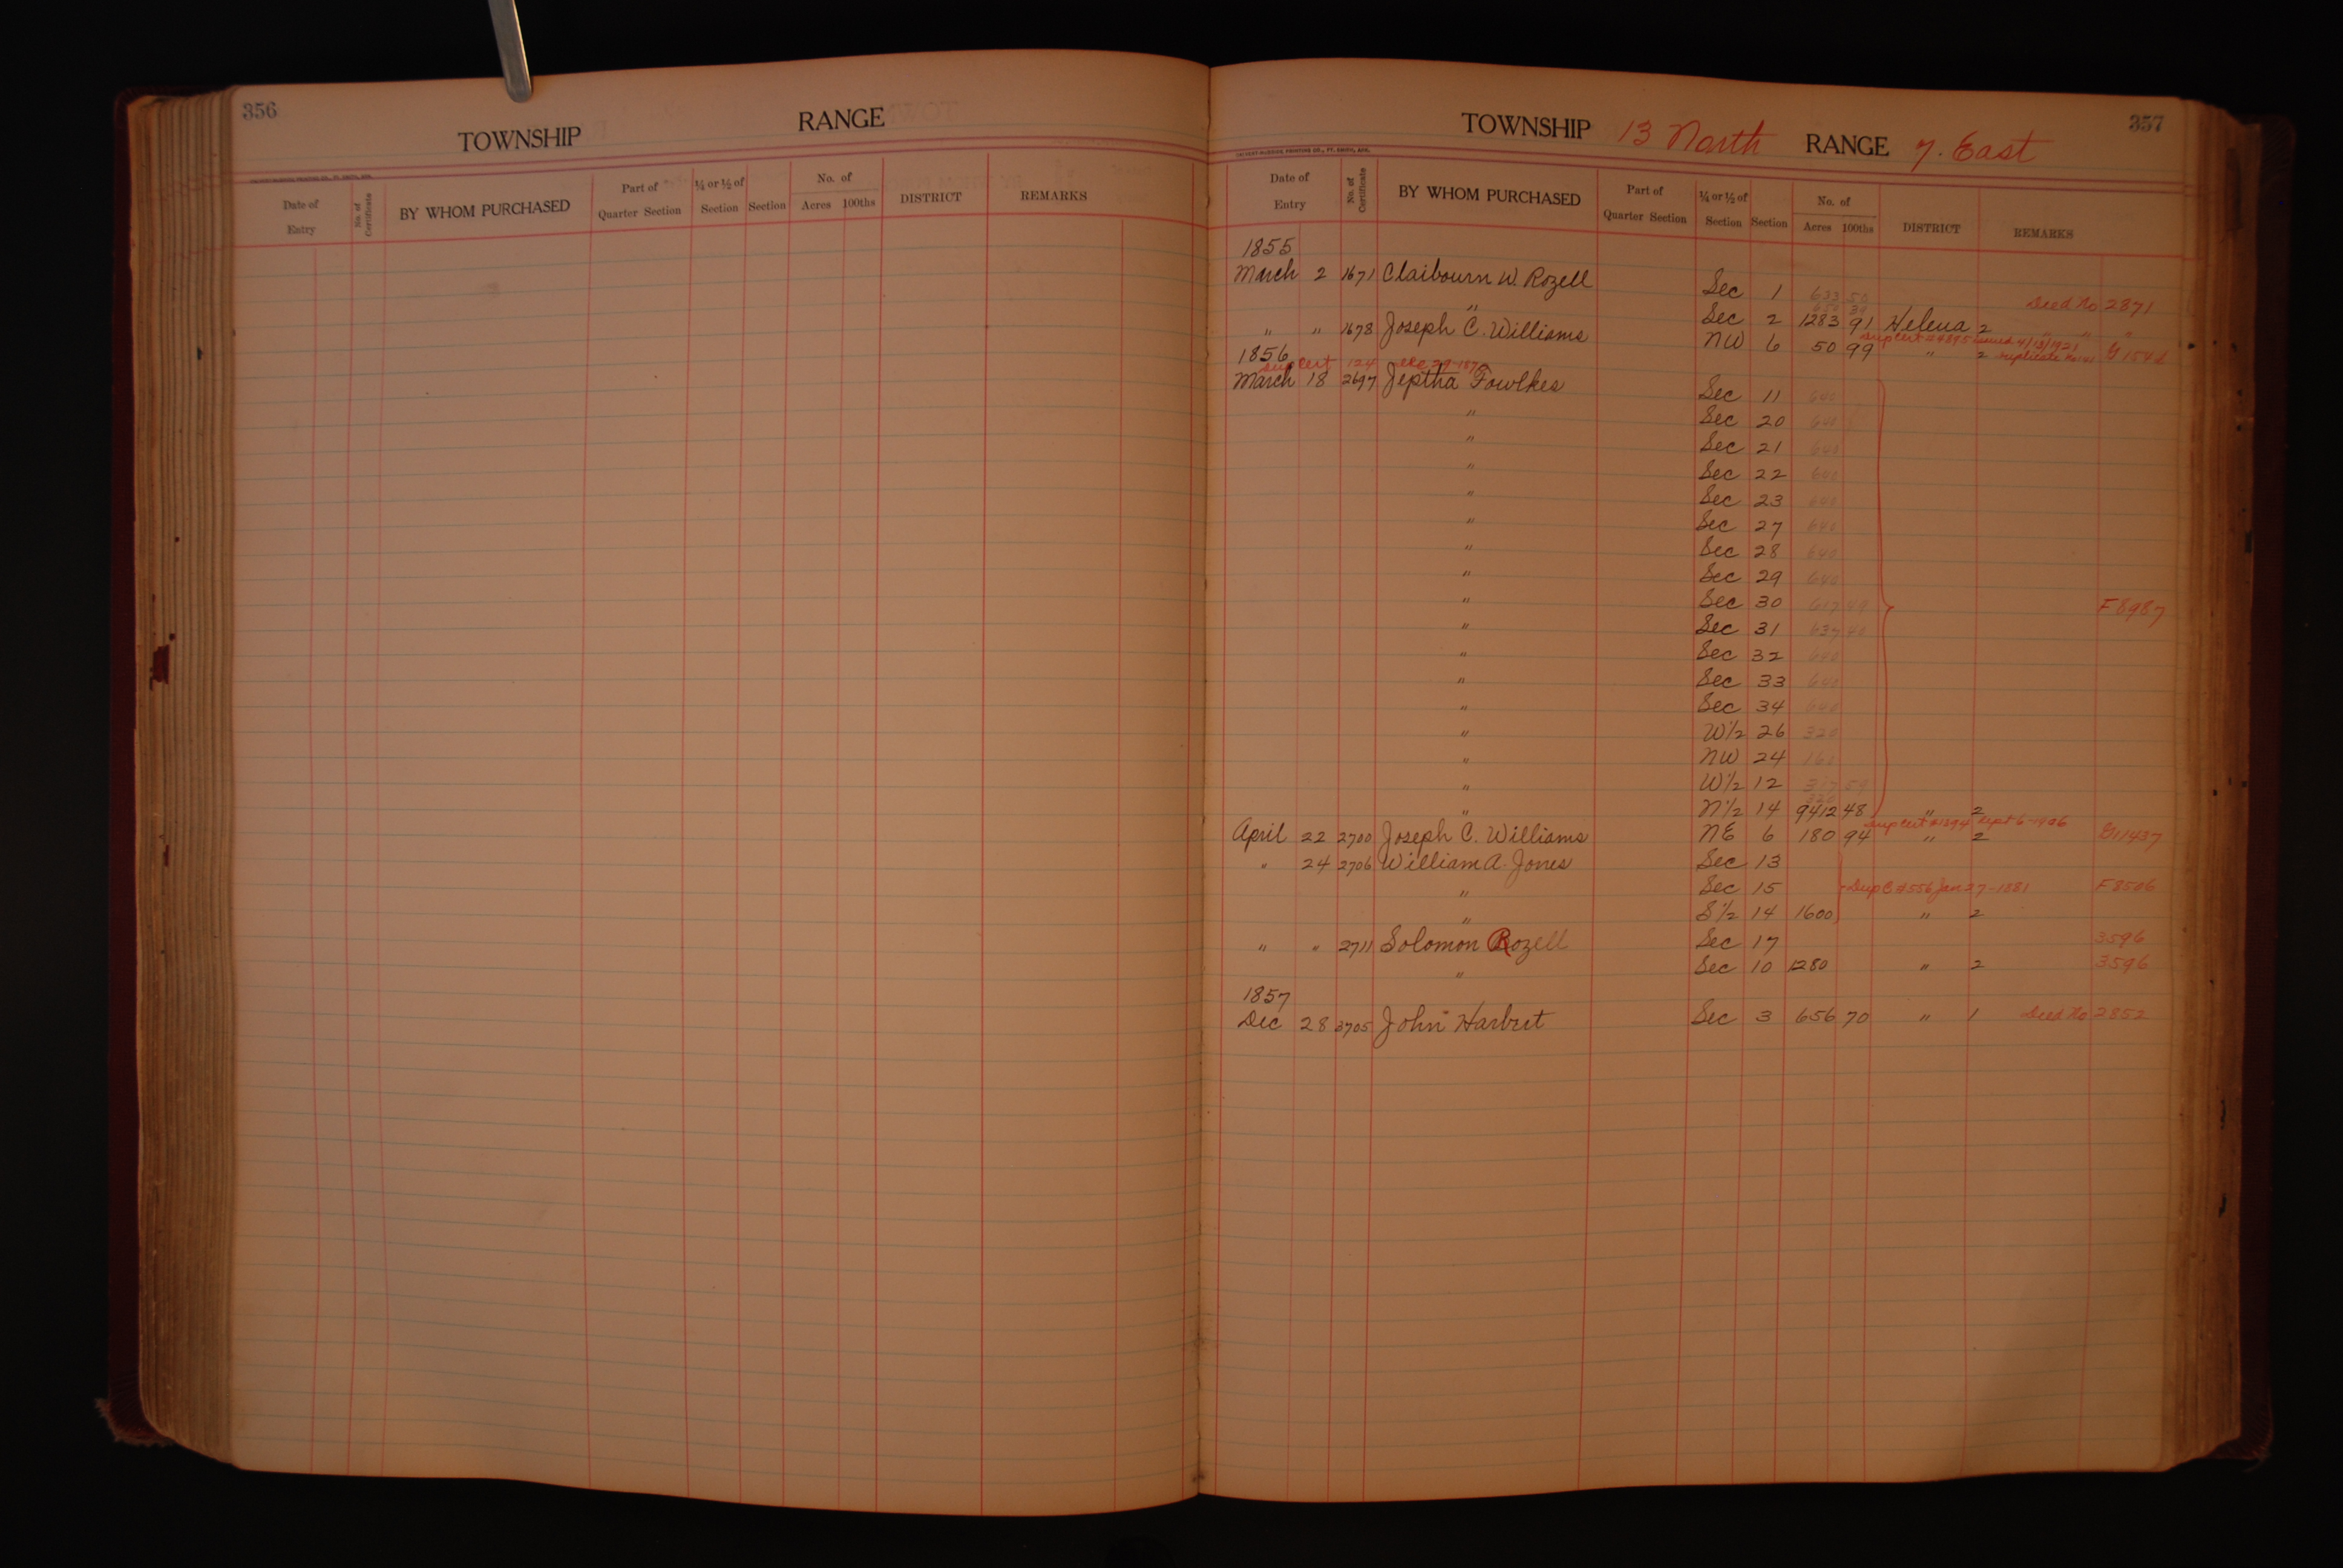 356
TOWNSHIP RANGE
Date of Entry No. of Certificate BY WHOM PURCHASED Part of Quarter Section ¼ or ½ of Section Section No. of Acres 100ths DISTRICT REMARKS
357
TOWNSHIP 13 North RANGE 7. East
Date of Entry No. of Certificate BY WHOM PURCHASED Part of Quarter Section ¼ or ½ of Section Section No. of Acres 100ths DISTRICT REMARKS
1855
March 2 1671 Claibourn W. Rozell Sec 1 633 50 Deed No 2871
" Sec 2 1283 91 Helena 2 " "
" " 1678 Joseph C. Williams NW 6 50 99 " 2
1856
March 18 2697 Jeptha Fowlkes Sec 11 640
" Sec 20 640
" Sec 21 640
" Sec 22 640
" Sec 23 640
" Sec 27 640
" Sec 28 640
" Sec 29 640
" Sec 30 617 49 F8987
" Sec 31 637 40
" Sec 32 640
" Sec 33 640
" Sec 34 640
" W½ 26 320
" NW 24 160
" W½ 12 317 59
" N½ 14 9412 48 " 2
Dup Cert Sept 6-1906
April 22 2700 Joseph C. Williams NE 6 180 94 " 2 G11437
" 24 2706 William A. Jones Sec 13
" Sec 15 Dup C #556 Jan 27-1881 F8506
" S½ 14 1600 " 2
" " 2711 Solomon Rozell Sec 17 3596
" Sec 10 1280 " 2 3596
1857
Dec 28 3705 John Harbert Sec 3 656 70 " 1 Deed No 2852